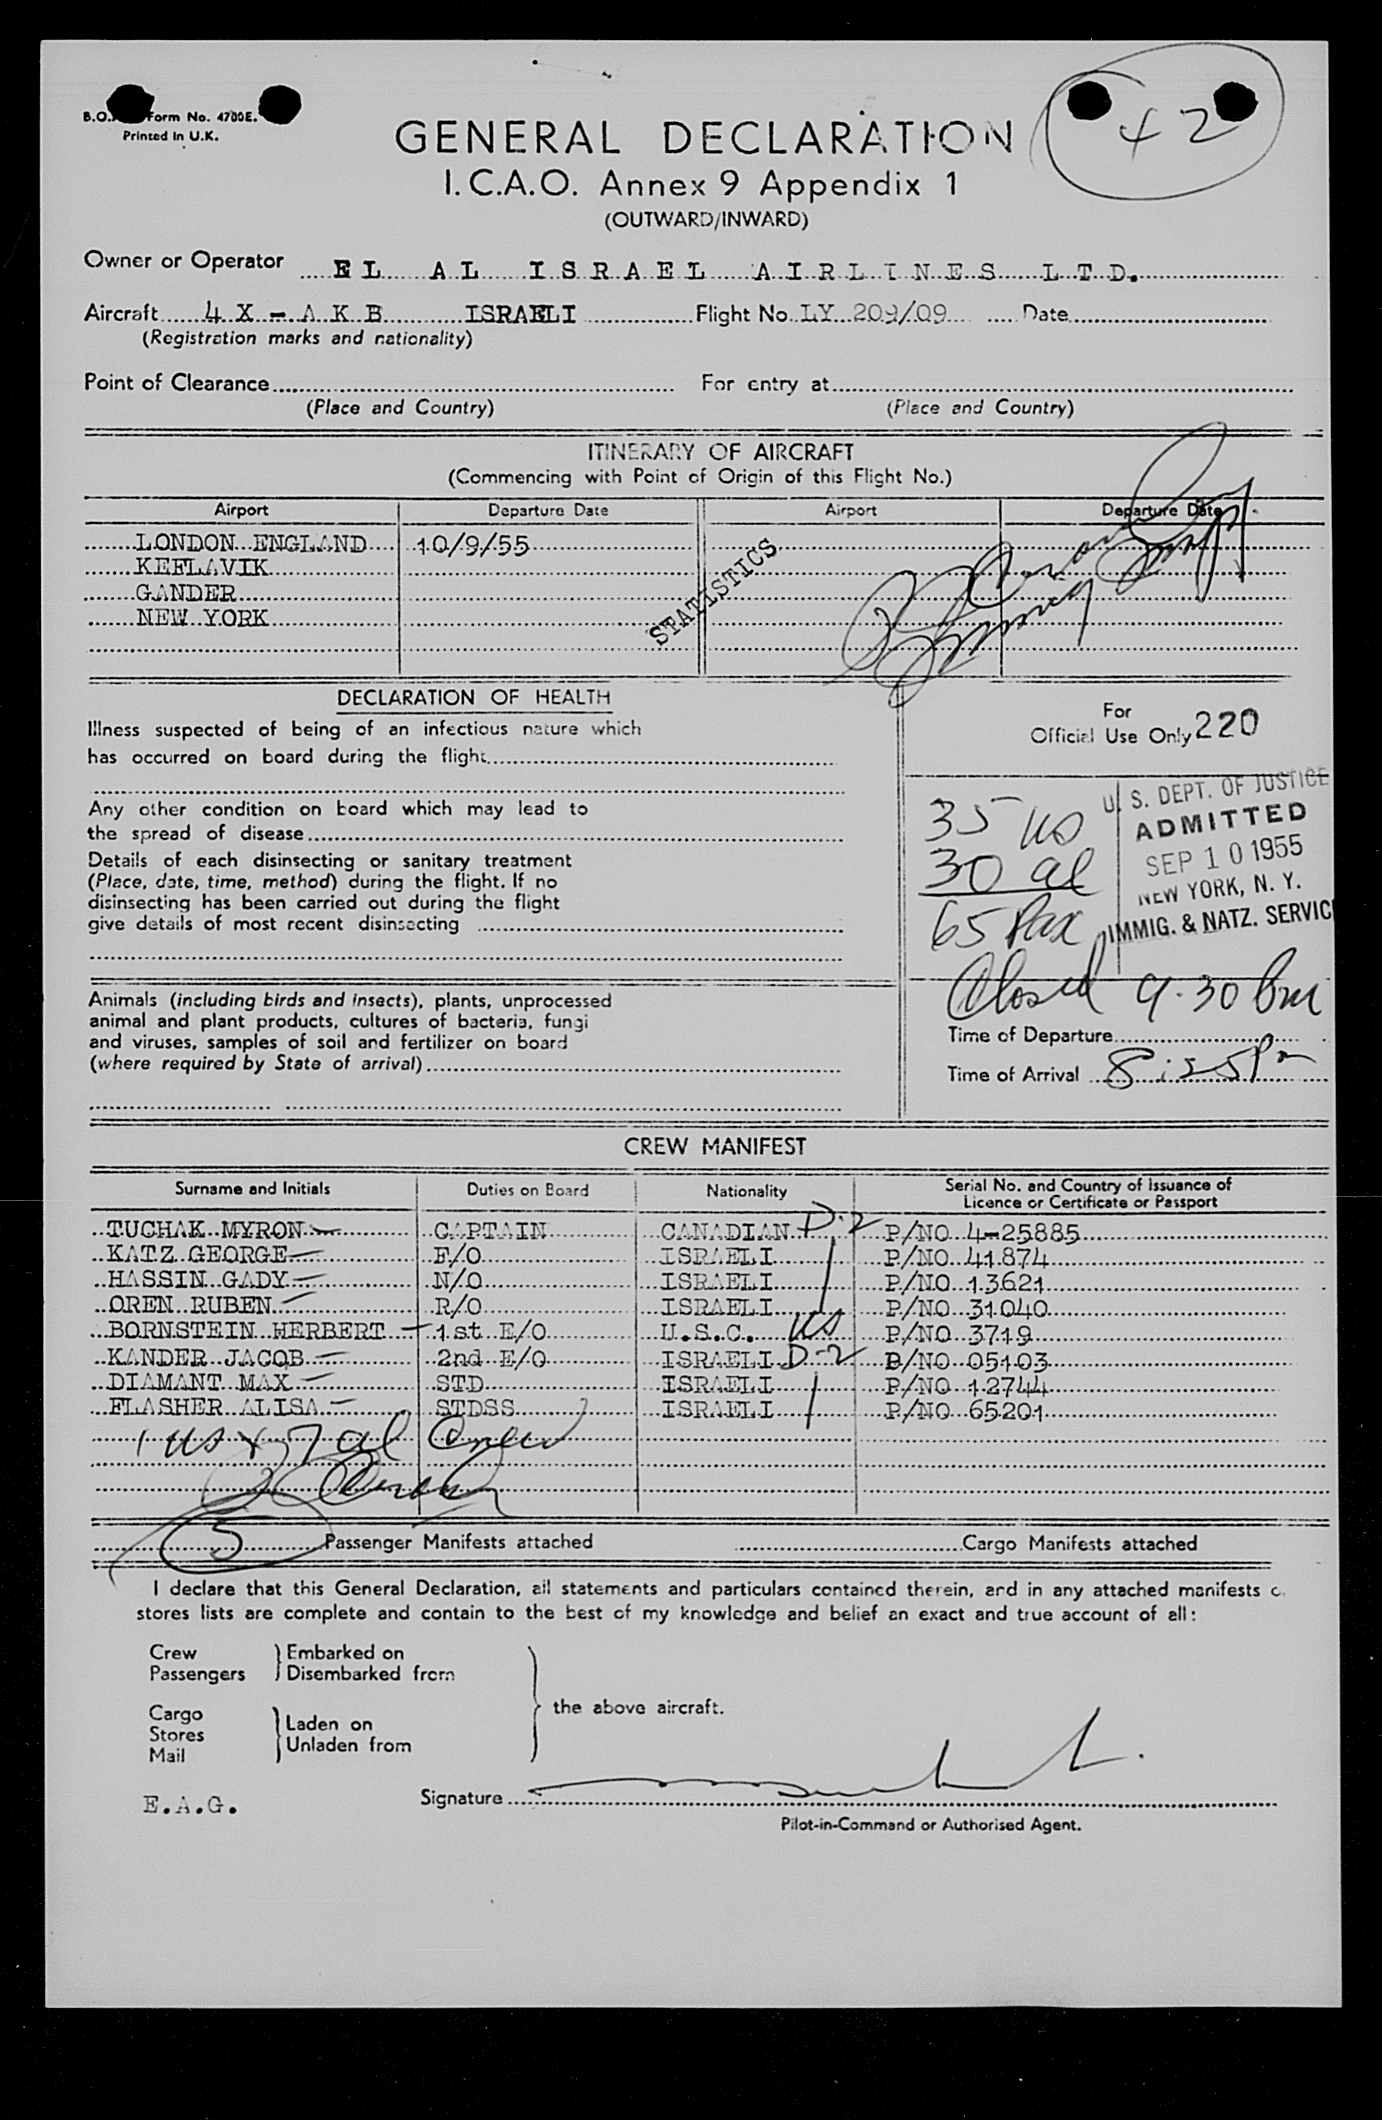 42
Form No. 4700E.
Printed in U.K.
GENERAL DECLARATION
I.C.A.O. Annex 9 Appendix 1
(OUTWARD/INWARD)
Owner or Operator EL AL ISRAEL AIRLINES LTD.
Aircraft 4X-AKB ISRAELI Flight No. LY 209/09 Date
(Registration marks and nationality)
Point of Clearance For entry at
(Place and Country) (Place and Country)
ITINERARY OF AIRCRAFT
(Commencing with Point of Origin of this Flight No.)
Airport Departure Date Airport Departure Date
LONDON ENGLAND 10/9/55
KEFLAVIK
GANDER
NEW YORK
STATISTICS
DECLARATION OF HEALTH
Illness suspected of being of an infectious nature which
has occurred on board during the flight
Any other condition on board which may lead to
the spread of disease
Details of each disinsecting or sanitary treatment
(Place, date, time, method) during the flight. If no
disinsecting has been carried out during the flight
give details of most recent disinsecting
Animals (including birds and insects), plants, unprocessed
animal and plant products, cultures of bacteria, fungi
and viruses, samples of soil and fertilizer on board
(where required by State of arrival)
For
Official Use Only 220
35 us
30 al
65 Pax
U. S. DEPT. OF JUSTICE
ADMITTED
SEP 10 1955
NEW YORK, N. Y.
IMMIG. & NATZ. SERVIC
Closed 9.30 pm
Time of Departure
Time of Arrival 8:25 Pm
CREW MANIFEST
Surname and Initials Duties on Board Nationality Serial No. and Country of Issuance of
Licence or Certificate or Passport
TUCHAK MYRON CAPTAIN CANADIAN D-2 P/NO 4-25885
KATZ GEORGE F/O ISRAELI P/NO 41874
HASSIN GADY N/O ISRAELI P/NO 13621
OREN RUBEN R/O ISRAELI P/NO 31040
BORNSTEIN HERBERT 1st E/O U.S.C. US P/NO 3719
KANDER JACOB 2nd E/O ISRAELI D-2 P/NO 05103
DIAMANT MAX STD ISRAELI P/NO 12744
FLASHER ALISA STDSS ISRAELI P/NO 65201
1 us + 7 al Crew
5 Passenger Manifests attached Cargo Manifests attached
I declare that this General Declaration, all statements and particulars contained therein, and in any attached manifests
stores lists are complete and contain to the best of my knowledge and belief an exact and true account of all:
Crew
Passengers
Embarked on
Disembarked from
Cargo
Stores
Mail
Laden on
Unladen from
the above aircraft.
E.A.G.
Signature
Pilot-in-Command or Authorised Agent.